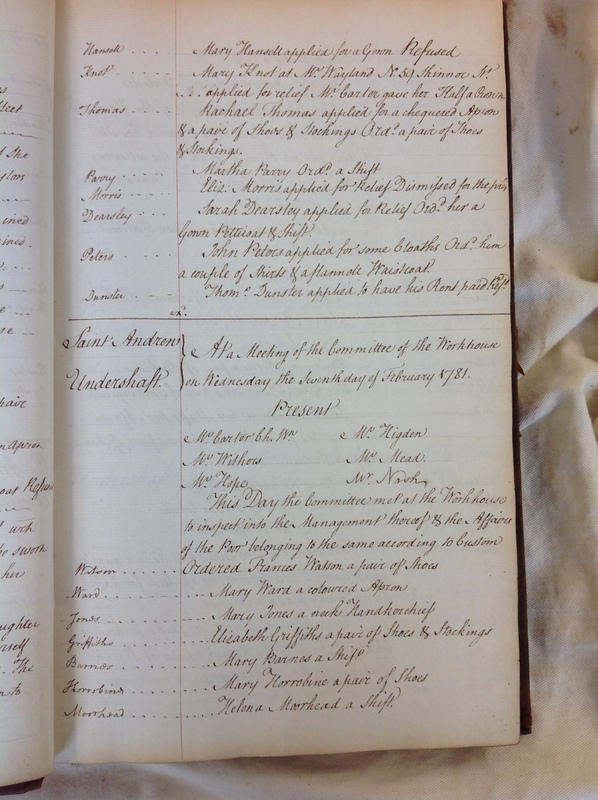 Hansell .... Mary Hansell applied for a Gown Refused
Knot ..... Mary Knot at Mr. Wayland No 59 Skinner St.
applied for relief Mr. Carter gave her Half a Crown
Thomas .... Rachael Thomas applied for a chequered Apron
& a pare of Shoes & Stockings Ordd. a pair of Shoes
& Stockings.
Parry .... Martha Parry Ordd. a Shift
Morris .... Eliz. Morris applied for Relief Dismissed for the prest
Dearsley .... Sarah Dearsley applied for Relief Ordd. her a
Gown Petticoat & Shift.
Peters ..... John Peters applied for some Cloaths Ordd. him
a couple of Shirts & a flannell Waistcoat.
Dunster .... Thoms. Dunster applied to have his Rent paid Refd.
ex.
Saint Andrew
Undershaft.
At a Meeting of the Committee of the Workhouse
on Wednesday the Seventh day of February 1781.
Present
Mr. Carter Ch. Wn. Mr. Higden
Mr. Withers Mr. Mead.
Mr. Hope Mr. Nash
This Day the Committee met at the Workhouse
to inspect into the Management thereof & the Affairs
of the Poor belonging to the same according to Custom
Watson ....... Ordered Frances Watson a pair of Shoes
Ward ........ Mary Ward a coloured Apron
Jones ........ Mary Jones a neck Handkerchief
Griffiths ........ Elizabeth Griffiths a pair of Shoes & Stockings
Barnes ........ Mary Barnes a Shift
Horrobine ........ Mary Horrobine a pair of Shoes
Moorhead ........ Helena Moorhead a Shift.